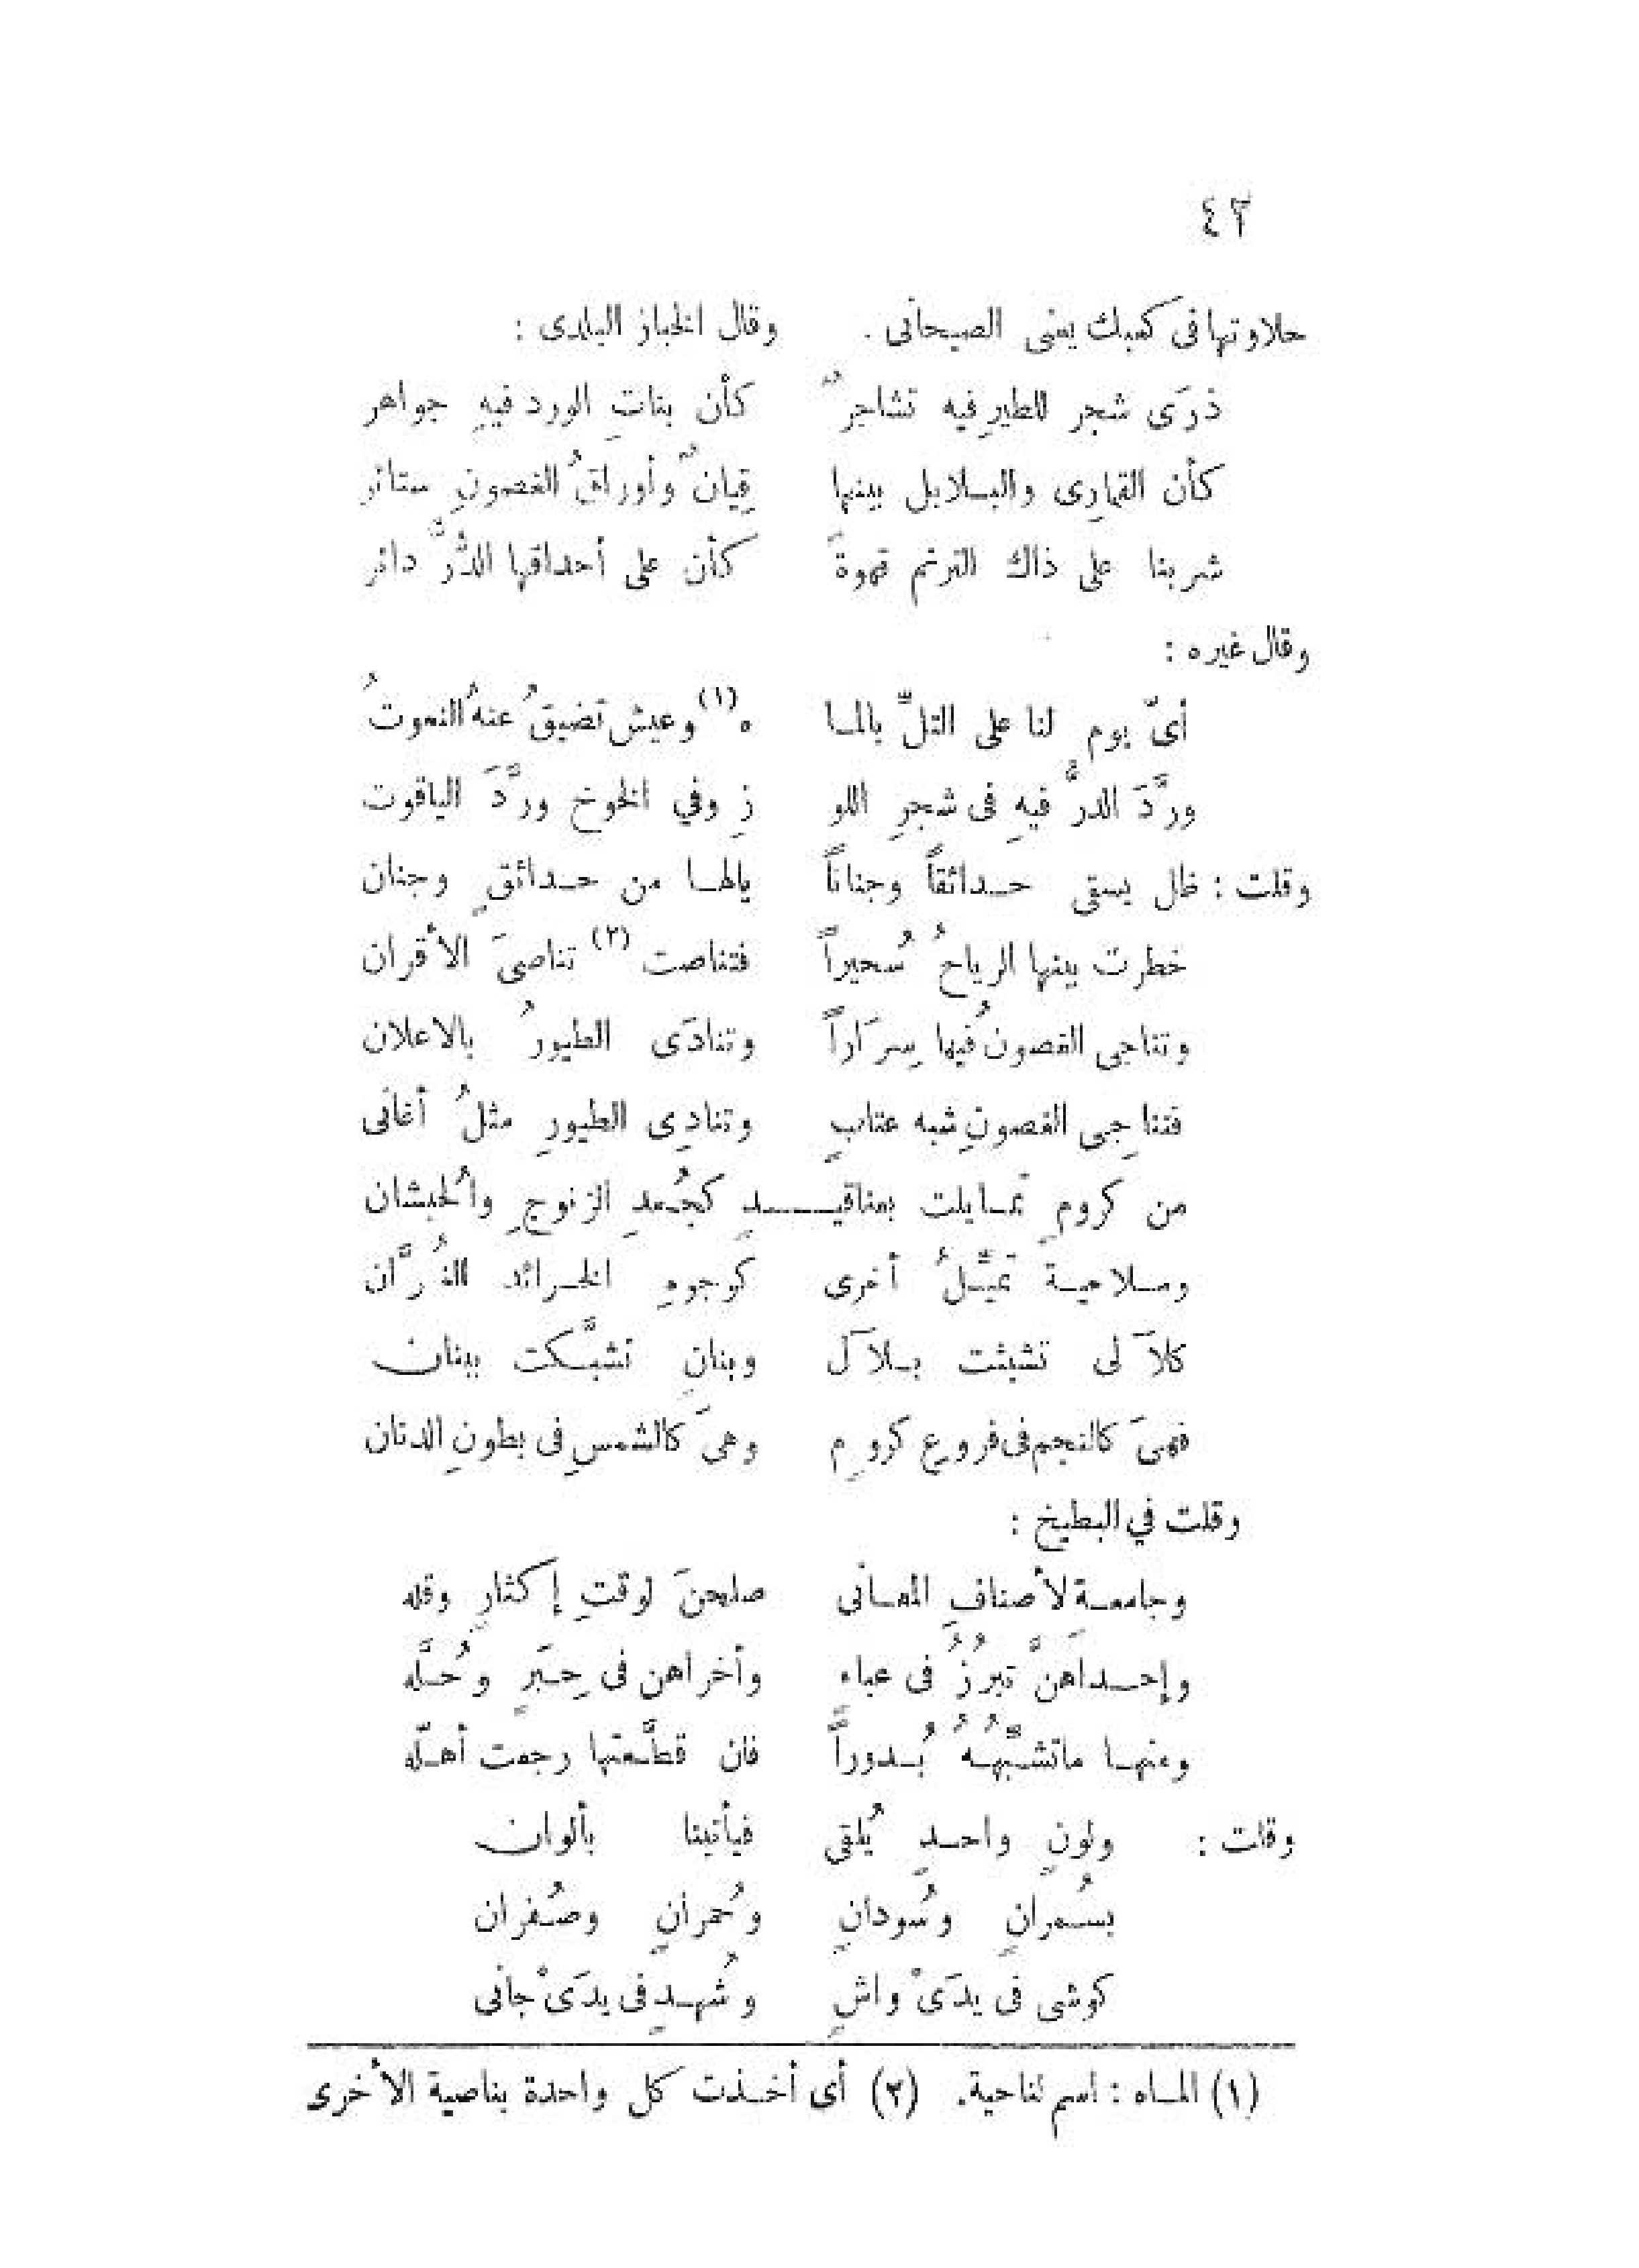 ٤٢
حلاوتها فى كعبك يعنى الصيحانى . وقال الخباز البلدى :
ذرَى شجر للطيرِ فيه تشاجرٌ كأن بناتِ الورد فيهِ جواهر
كأن القمارِى والبـلابل بينها قِيانٌ وأوراقُ الغصونِ ستائر
شربنا على ذاك الترنم قهوةً كأن على أحداقها الدُّرَّ دائر
وقال غيره :
أىّ يوم لنا على التلِّ بالمـا ه (١) وعيش تضيقُ عنهُ النعوتُ
ورَّدَ الدرُّ فيهِ فى شجرِ اللو زِ وفي الخوخ ورَّدَ الياقوت
وقلت : ظل يسقى حـدائقاً وجناناً يالهـا من حـدائقٍ وجنان
خطرت بينها الرياحُ سُحيراً فتناصت (٢) تناصىَ الأقران
وتناجى الغصونُ فيها سِرَاراً وتنادَى الطيورُ بالاعلان
فتناجِى الغصونِ شبه عتابٍ وتنادِى الطيورِ مثلُ أغانى
من كرومٍ تمـايلت بعناقيـــدٍ كجُعـدِ الزنوجِ والُحبشان
ومـلاحيـةً تميَّـلُ أخرى كوجوهِ الخـرائد الغُرَّان
كلآلى تشبثت بـلآل وبنانٍ تشبَّـكت ببنان
فهىَ كالنجم فى فروعِ كرومٍ وهىَ كالشمسِ فى بطونِ الدنان
وقلت في البطيخ :
وجامعـةٍ لأصنافِ المعـانى صلحنَ لوقتِ إكثارٍ وقله
وإحـداهنَّ تبرُزُ فى عباء وأخراهن فى حِـبَرٍ وحُـلَّه
ومنهـا ماتشـبِّهُـهُ بُـدوراً فان قطَّـعتها رجعت أهـلّه
وقلت : ولونٍ واحـدٍ يُلقى فيأتينا بألوان
بسُـمرانٍ وسُودانٍ وحُمرانٍ وصُـفران
كوشى فى يدَىْ واشٍ وشُهـدٍ فى يدَىْ جانى
(١) المـاه : اسم لناحية. (٢) أى أخـذت كل واحدة بناصية الأخرى